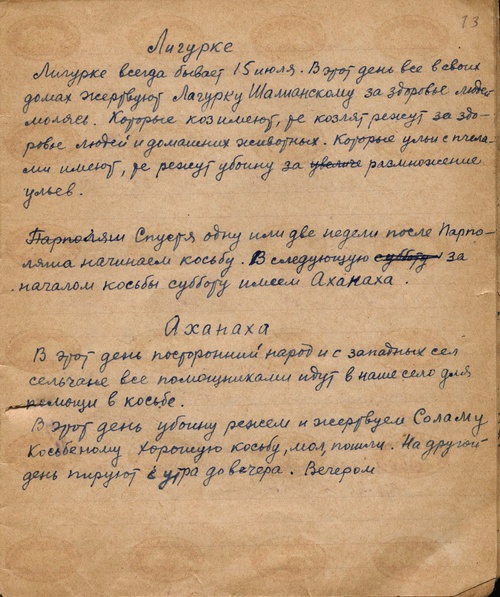 13
Лигурке
Лигурке всегда бывает 15 июля. В этот день все в своих
домах жертвуют Лагурку Шалианскому за здоровье людей
молясь. Которые коз имеют, те козлят режут за здо-
ровье людей и домашних животных. Которые ульи с пчела-
ми имеют, те режут убоину за увеличе размножение
ульев.
Спустя одну или две недели после Парпо-
ляша начинаем косьбу. В следующую субботу за
началом косьбы субботу имеем Аханаха.
Аханаха
В этот день посторонний народ и с западных сел
сельчане все помощниками идут в наше село для
помощи в косьбе.
В этот день убоину режем и жертвуем Соламу
Косьбеному Хорошую косьбу, мол, пошли. На другой
день пируют с утра до вечера. Вечером